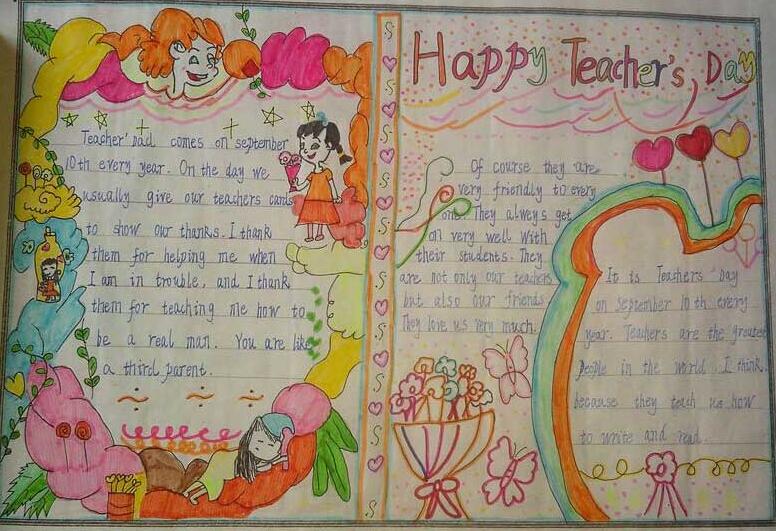 Happy Teacher's Day
Teacher' dad comes on september
10th every year. On the day we
usually give our teachers cards
to show our thanks. I thank
them for helping me when
I am in trouble, and I thank
them for teaching me how to
be a real man. You are like
a third parent.
Of course they are
very friendly to every
one. They always get
on very well with
their students. They
are not only our teachers
but also our friends
They love us very much.
It is Teachers' Day
on september 10 th every
year. Teachers are the greatest
people in the world. I think.
because they teach us how
to write and read.